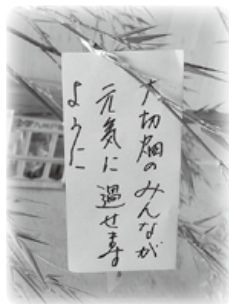 大切畑のみんなが
元気に過せます。
ように